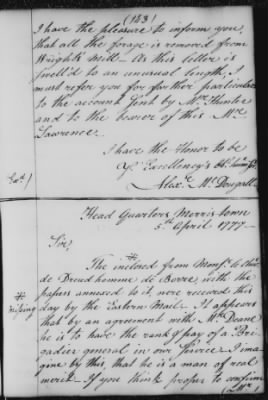 (183)
I have the pleasure to inform you
that all the forage is removed from
Wrights mill – As this letter is
swell'd to an unusual length, I
must refer you for further particulars
to the account sent by Mr. Hunter
and to the bearer of this Mr.
Lawrence.
I have the Honor to be
Yr. Excellency's
Exd)
Alexr. McDougall
Head Quarters Morris town
5th. April 1777
Sir,
The inclosed from Monsr. le Chev.
de Preud homme de Borre with the
papers annexed to it, were received this
*
Missing
day by the Eastern Mail. It appears
that by an agreement with Mr. Deane
he is to have the rank & pay of a Bri-
gadier general in our service I ima-
gine by this, that he is a man of real
merit. If you think proper to confirm